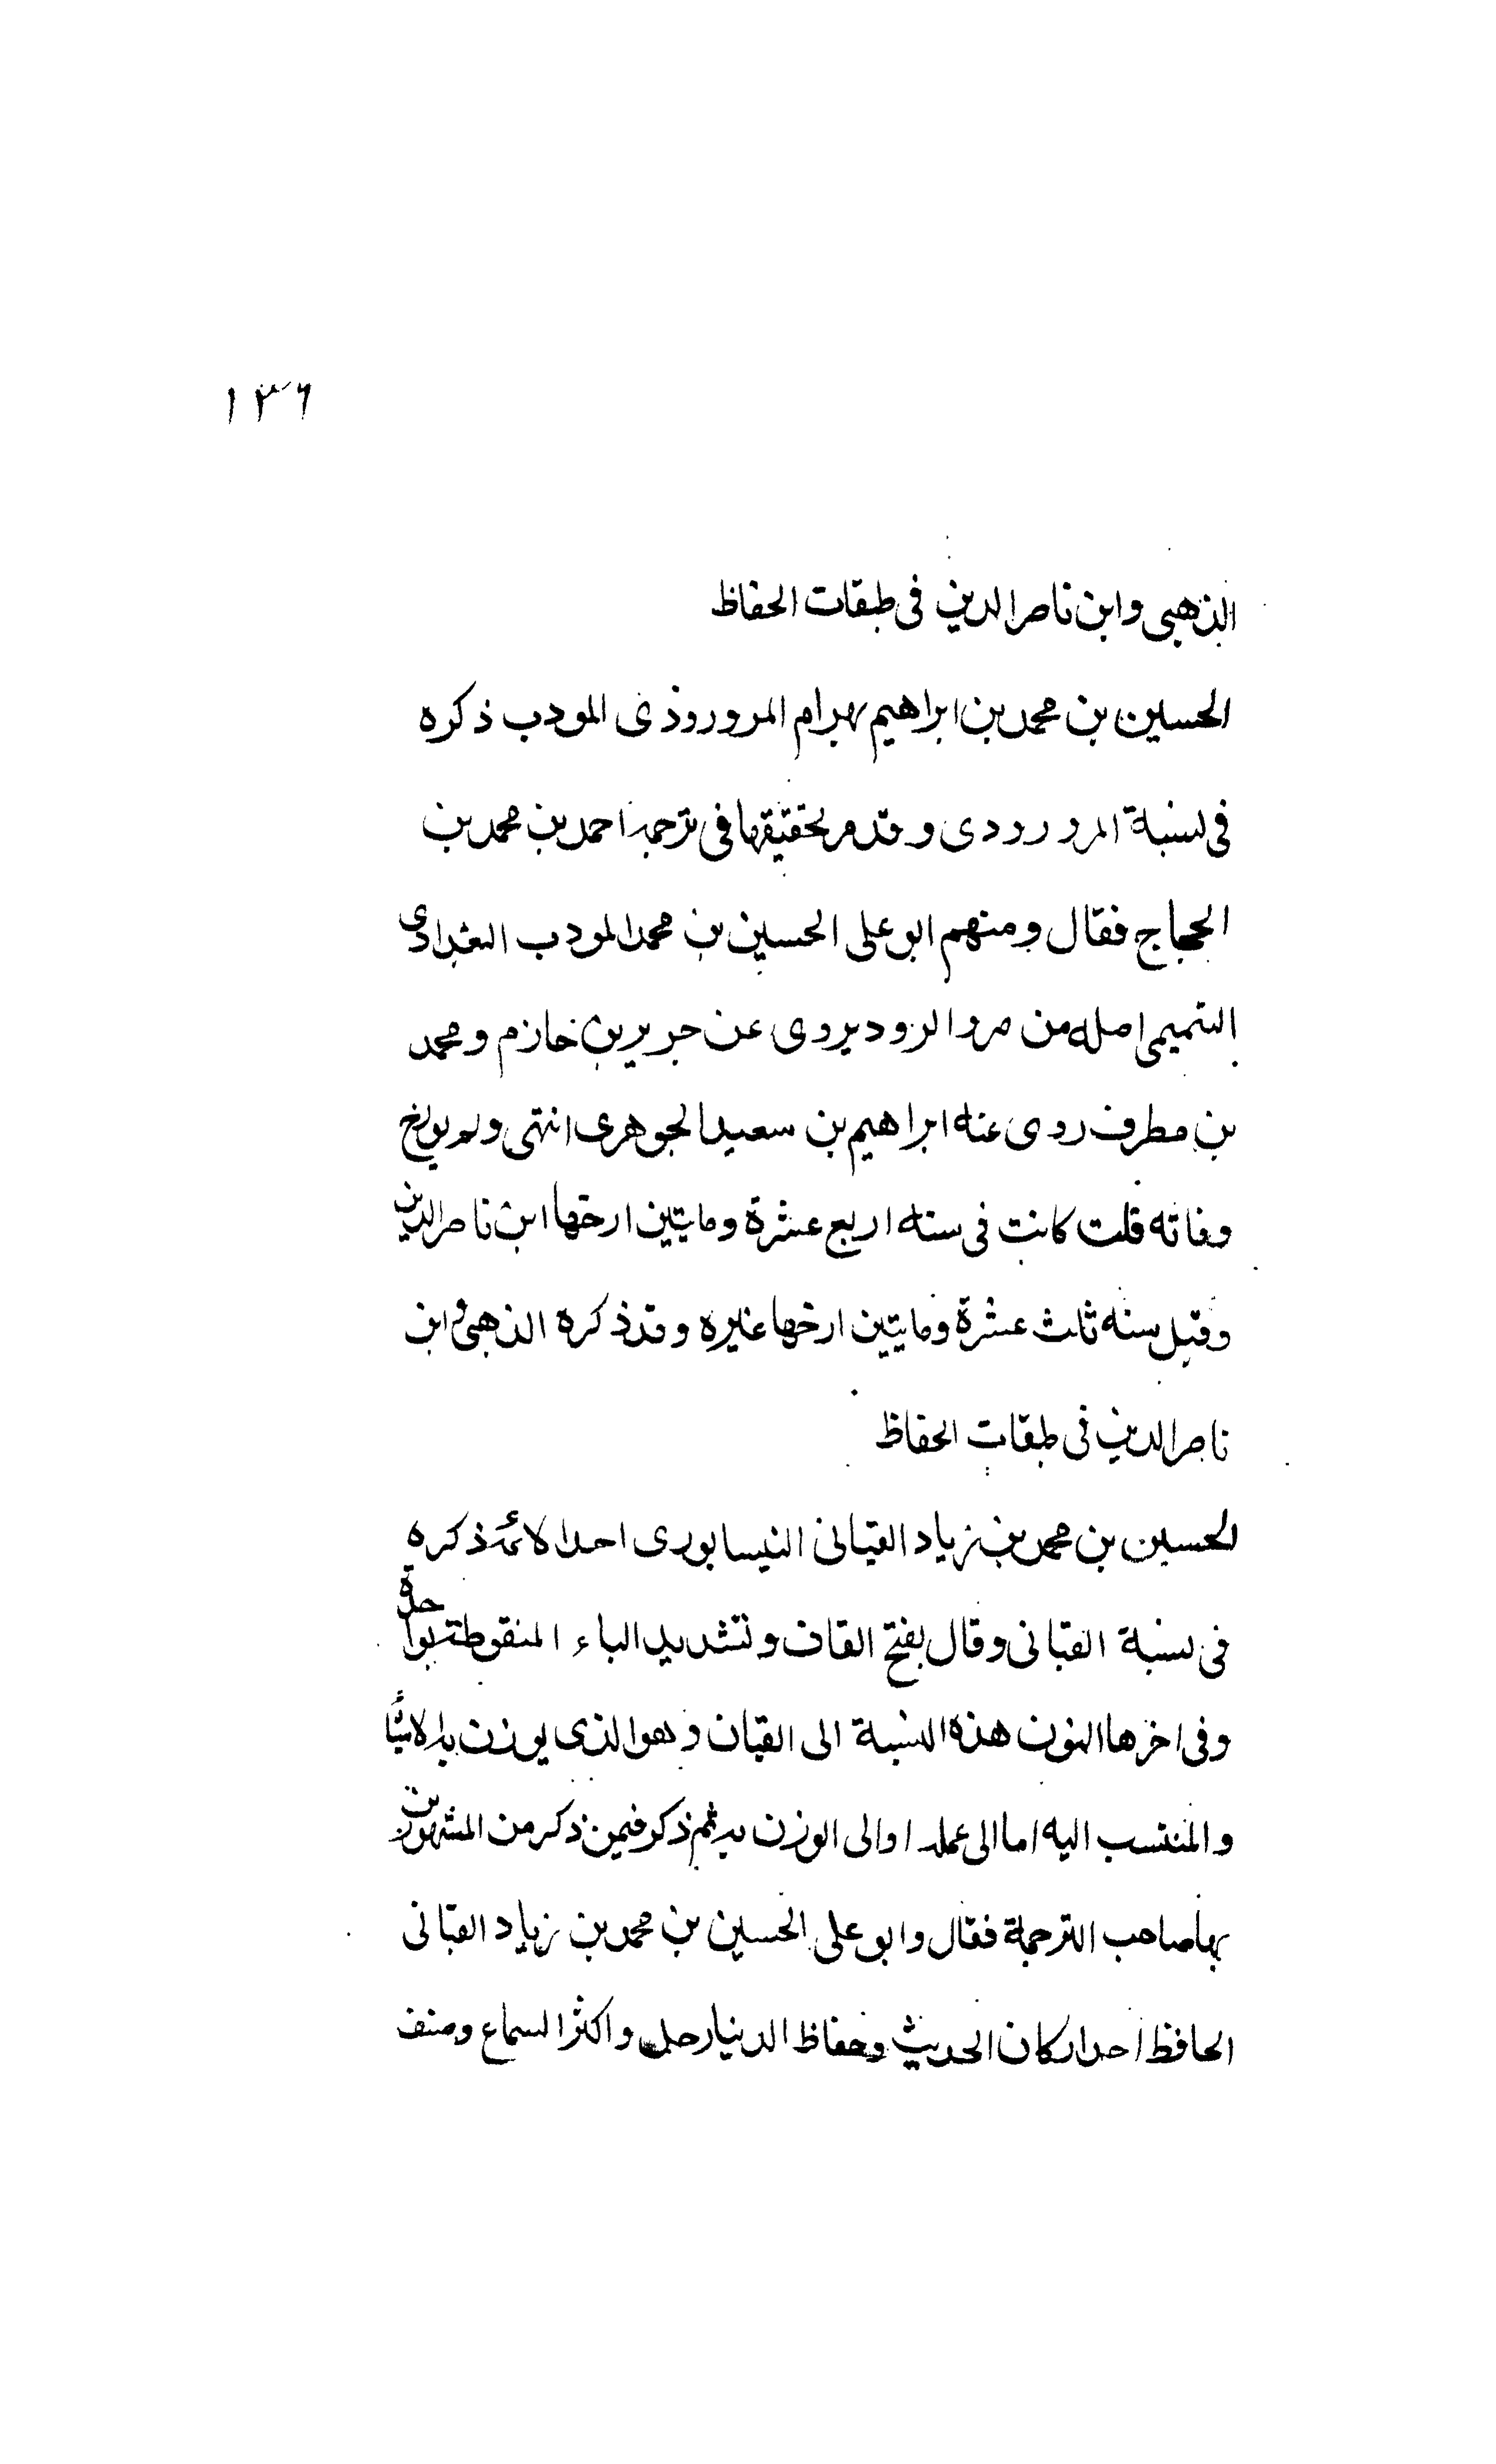 ١٣٦
الذهبى وابن ناصر الدين فى طبقات الحفاظ
الحسين بن محمد بن ابراهيم بهرام المروروذى المودب ذكره
فى نسبة المروروذى وقد مر تحقيقها فى ترجمة احمد بن محمد بن
الحجاج فقال ومنهم ابو على الحسين بن محمد المودب البغدادى
التميمى اصله من مرو الرود يروى عن جرير بن خازم ومحمد
بن مطرف روى عنه ابراهيم بن سعيد الجوهرى انتهى ولم يورخ
وفاته قلت كانت فى سنه اربع عشرة ومايتين ارخها ابن ناصر الدين
وقيل سنه ثلث عشرة ومايتين ارخها غيره وقد ذكره الذهبى وابن
ناصر الدين فى طبقات الحفاظ
الحسين بن محمد بن زياد القبانى النيسابورى احد الائمة ذكره
فى نسبة القبانى وقال بفتح القاف وتشديد الباء المنقوطة بواحدة
وفى اخرها النون هذه النسبة الى القبان وهو الذى يوزن به الاشياء
والمنتسب اليه اما الى عمله او الى الوزن به ثم ذكر فيمن ذكر من المشهورين
بها صاحب الترجمة فقال وابو على الحسين بن محمد بن زياد القبانى
الحافظ احد اركان الحديث وحفاظ الدنيا رحل واكثر السماع وصنف